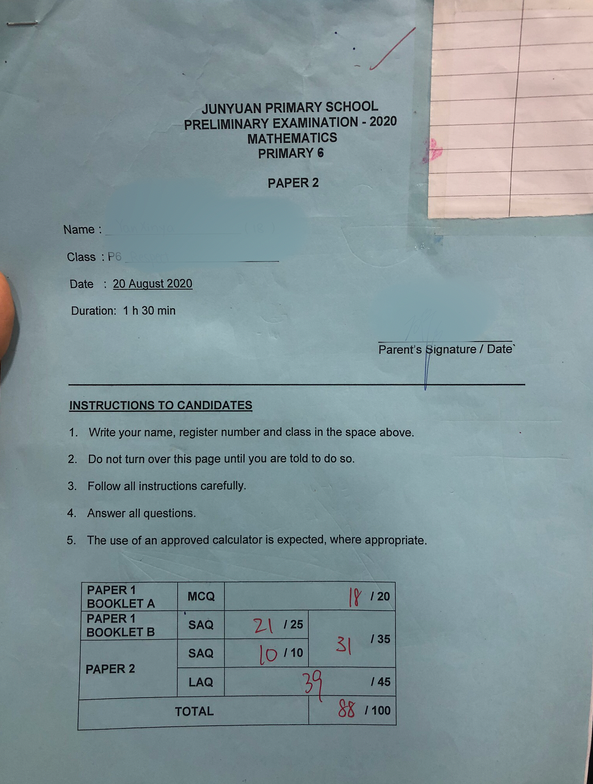 JUNYUAN PRIMARY SCHOOL
PRELIMINARY EXAMINATION - 2020
MATHEMATICS
PRIMARY 6
PAPER 2
Name :
Class : P6
Date : 20 August 2020
Duration: 1 h 30 min
Parent's Signature / Date
INSTRUCTIONS TO CANDIDATES
1. Write your name, register number and class in the space above.
2. Do not turn over this page until you are told to do so.
3. Follow all instructions carefully.
4. Answer all questions.
5. The use of an approved calculator is expected, where appropriate.
PAPER 1 BOOKLET A MCQ 18 / 20
PAPER 1 BOOKLET B SAQ 21 / 25
31 / 35
PAPER 2 SAQ 10 / 10
LAQ 39 / 45
TOTAL 88 / 100